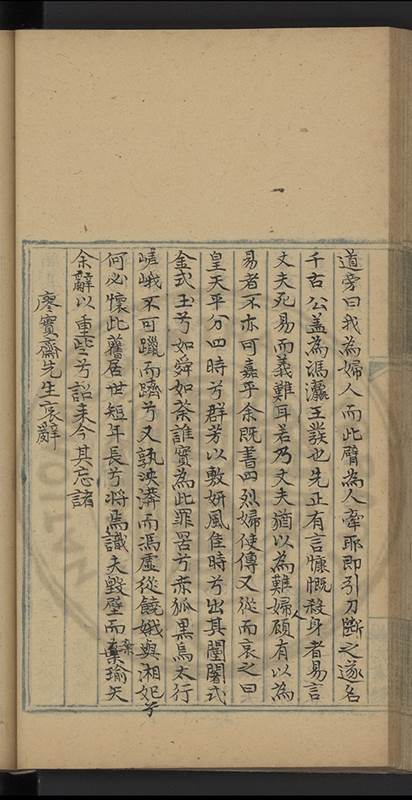 道旁曰我為婦人而此臂為人牽耶即引刀斷之遂名
千古公盖為馮瀛王發也先正有言慷慨殺身者易言
丈夫死易而義難耳若乃丈夫猶以為難婦人顧有以為
易者不亦可嘉乎余既書四烈婦使傳又從而哀之曰
皇天平分四時兮群芳以敷妍風隹時兮出其闉闍式
金式玉兮如舜如荼誰實為此罪罟兮赤狐黑烏太行
嵯峨不可躐而躋兮又孰泱漭而馮虛從饒娥與湘妃兮
何必懷此舊居世短年長兮將焉識夫毀璧而棄瑜矢
余辭以重些兮詔来今其忘諸
廖實齋先生哀辭